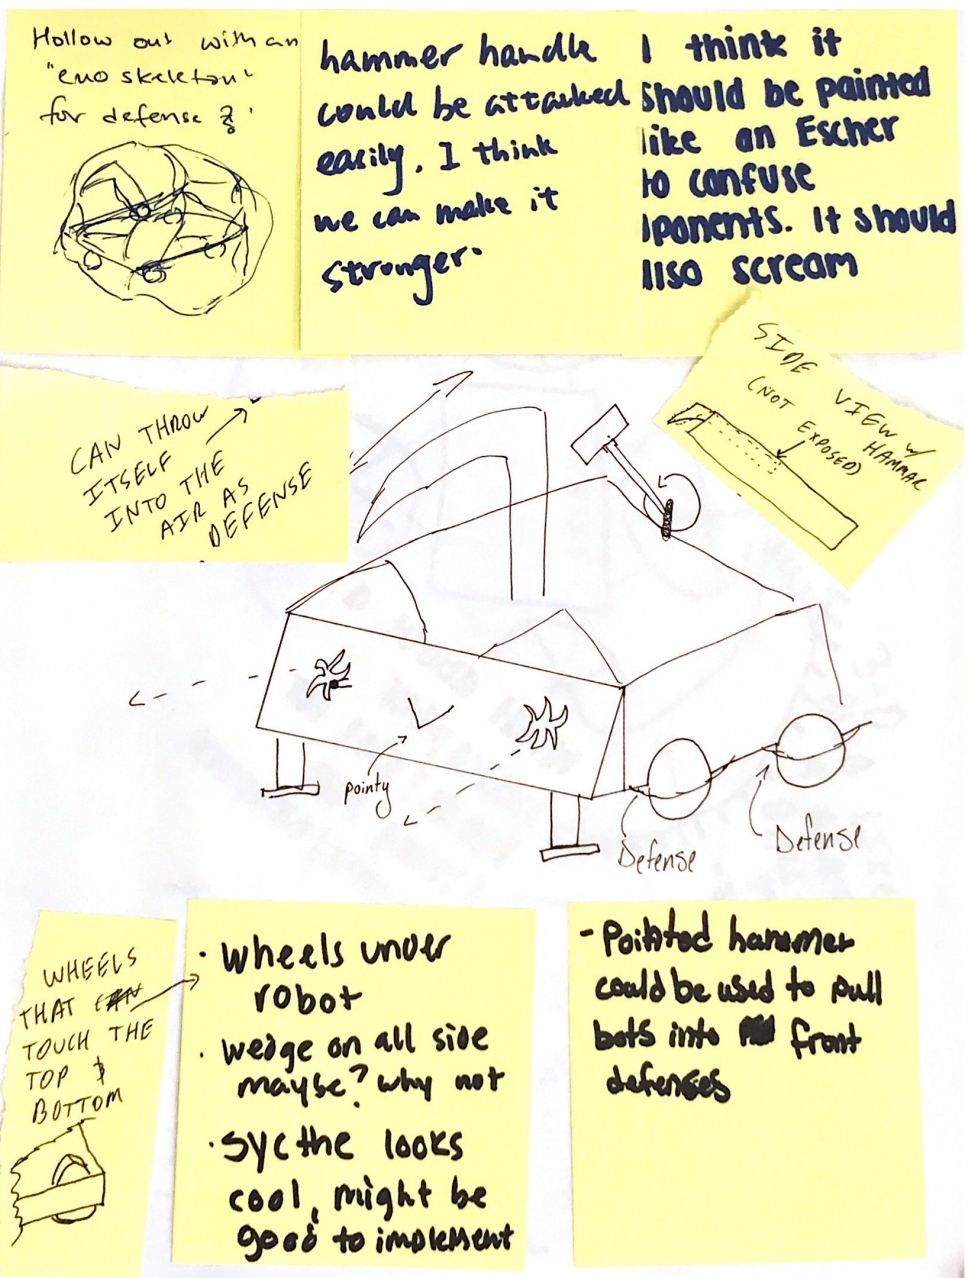 Hollow out with an
"exo skeleton"
for defense
hammer handle
could be attacked
easily, I think
we can make it
stronger.
I think it
should be painted
like an Escher
to confuse
ponents. It should
also scream
CAN THROW
ITSELF
INTO THE
AIR AS
DEFENSE
SIDE VIEW w/
(NOT HAMMAR
EXPOSED)
pointy
Defense
Defense
WHEELS
THAT
TOUCH THE
TOP &
BOTTOM
· Wheels under
robot
· wedge on all side
maybe? why not
· Sycthe looks
cool, might be
good to implement
- Pointed hammer
could be used to pull
bots into front
defenses